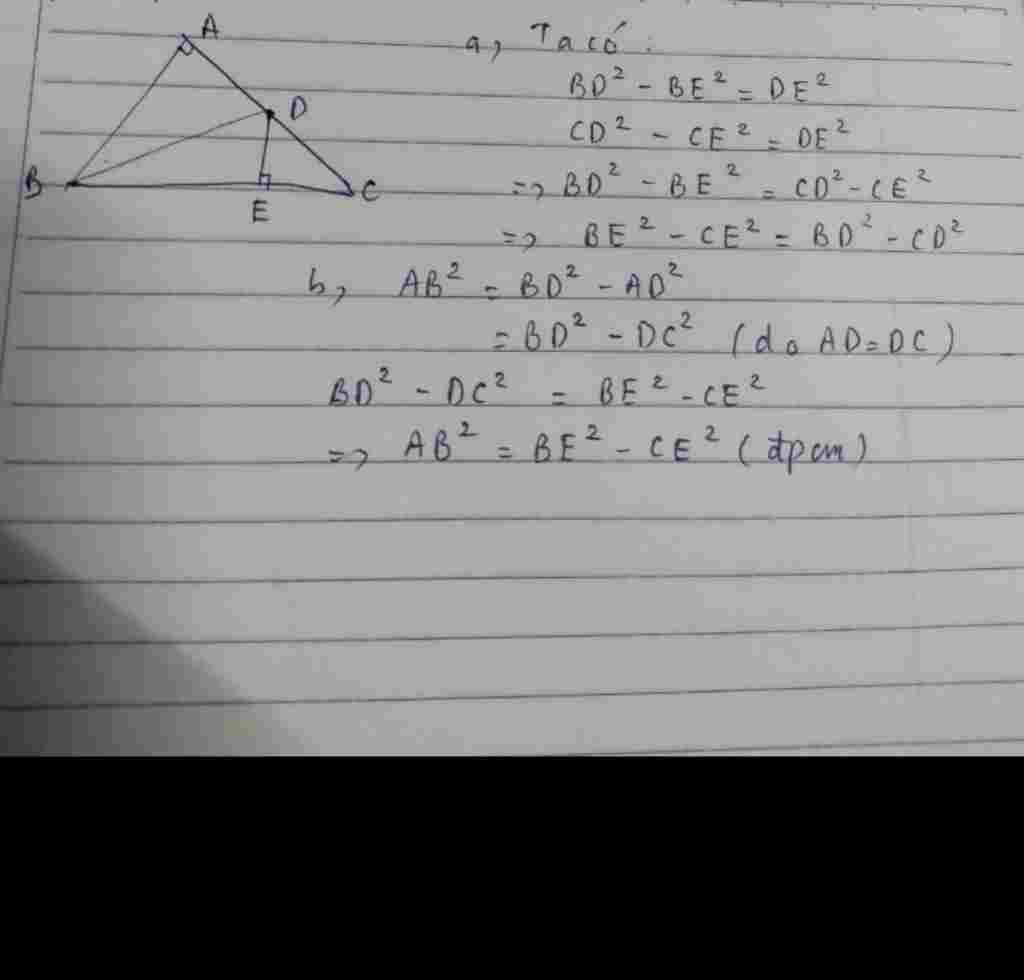 A
D
B
E
C
a, Ta có:
BD² - BE² = DE²
CD² - CE² = DE²
=> BD² - BE² = CD² - CE²
=> BE² - CE² = BD² - CD²
b, AB² = BD² - AD²
= BD² - DC² (do AD = DC)
BD² - DC² = BE² - CE²
=> AB² = BE² - CE² (đpcm)